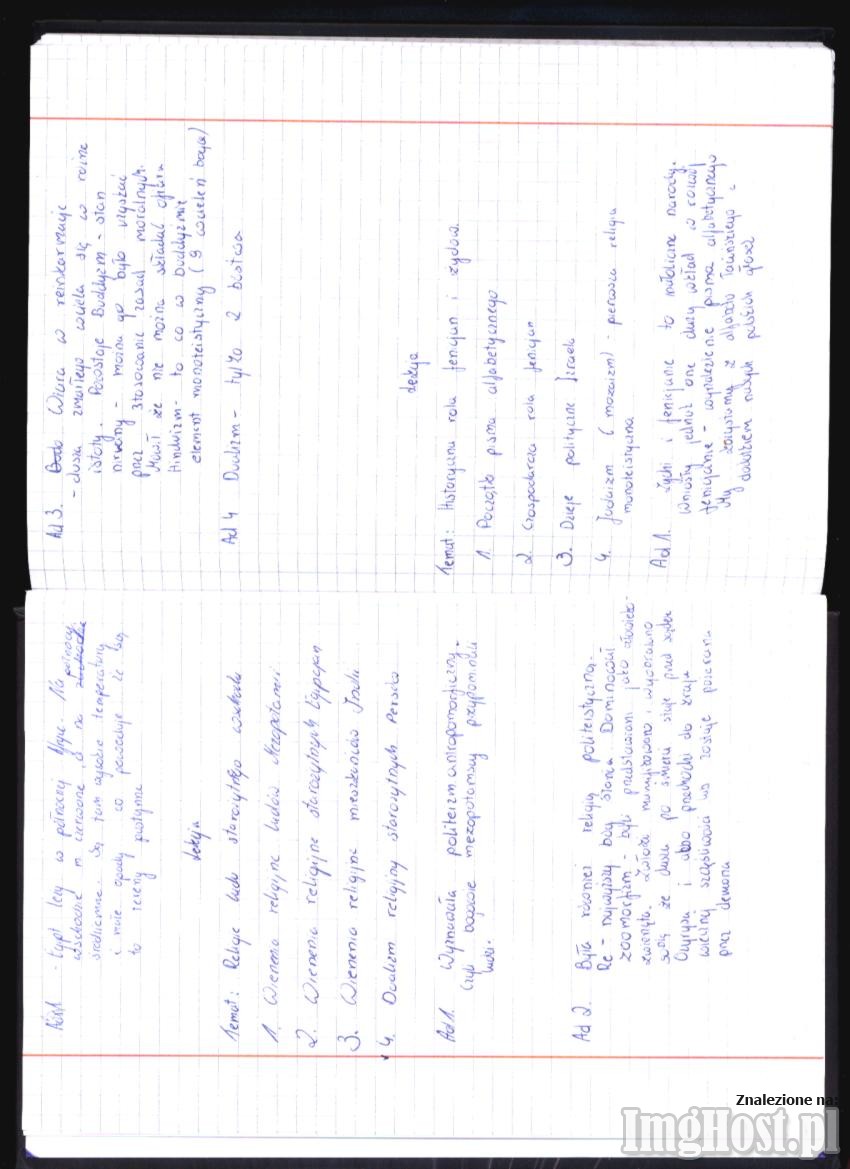 - Egipt leży w północnej Afryce. Na północy
wschodnie m czerwone a na
śródziemne. Są tam wysokie temperatury
i małe opady co powoduje że są
to tereny pustynne
Lekcja
Temat: Religie ludów starożytnego wschodu
1. Wierzenia religijne ludów Mezopotamii
2. Wierzenia religijne starożytnych Egipcjan
3. Wierzenia religijne mieszkańców Indii
4. Dualizm religijny starożytnych Persów
Ad 1. Wyznawała politeizm antropomorficzny -
czyli bogowie mezopotamscy przypominali
ludzi.
Ad 2. Była również religią politeistyczną.
Re - najwyższy bóg słońca. Dominował
zoomorfizm - byli przedstawiani jako
zwierzęta. Zwłoki mumifikowano, wyobrażano
sobie że dusza po śmierci staje przed sądem
Ozyrysa i albo przechodzi do kraju
wiecznej szczęśliwości lub zostaje pożerana
przez demona
Ad 3. Wiara w reinkarnację
- dusza zmarłego wciela się w różne
istoty. Powstaje Buddyzm - stan
nirwany - można go było uzyskać
przez stosowanie zasad moralnych.
Mówił że nie można składać ofiar
Hinduizm - to co w buddyzmie
element monoteistyczny (9 wcieleń boga)
Ad 4 Dualizm - tylko 2 bóstwa
Lekcja
Temat: Historyczna rola fenicjan i żydów.
1. Początki pisma alfabetycznego
2. Gospodarcza rola fenicjan
3. Dzieje polityczne Izraela
4. Judaizm (mozaizm) - pierwsza religia
monoteistyczna
Ad 1. Żydzi i fenicjanie to nieliczne narody.
Wniosły jednak one duży wkład w rozwój
fenicjanie - wynalezienie pisma alfabetycznego
My korzystamy z alfabetu łacińskiego z
dodatkiem naszych polskich głosek
Znalezione na:
ImgHost.pl